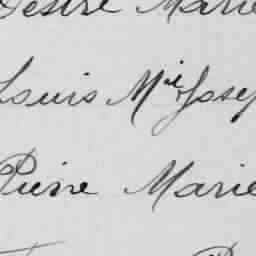 Désiré Marie
Louis Mie Josep
Pierre Marie